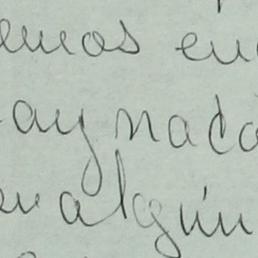 emos en
ay nada
en algún